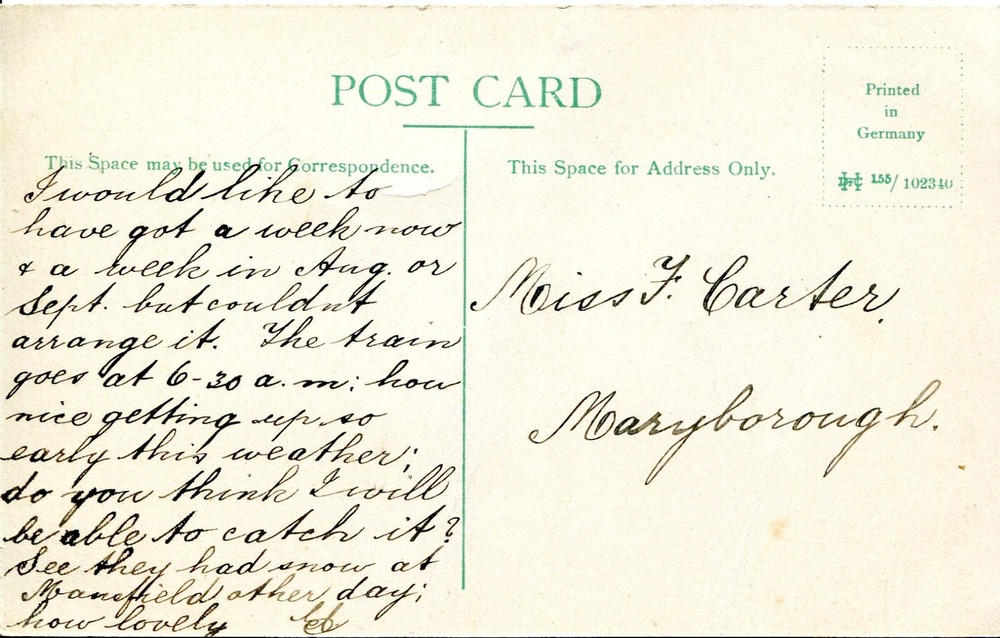 POST CARD
Printed
in
Germany
155/102340
This Space may be used for Correspondence.
I would like to
have got a week now
& a week in Aug. or
Sept. but couldnt
arrange it. The train
goes at 6-30 a.m; how
nice getting up so
early this weather;
do you think I will
be able to catch it?
See they had snow at
Mansfield other day;
how lovely
This Space for Address Only.
Miss F. Carter.
Maryborough.